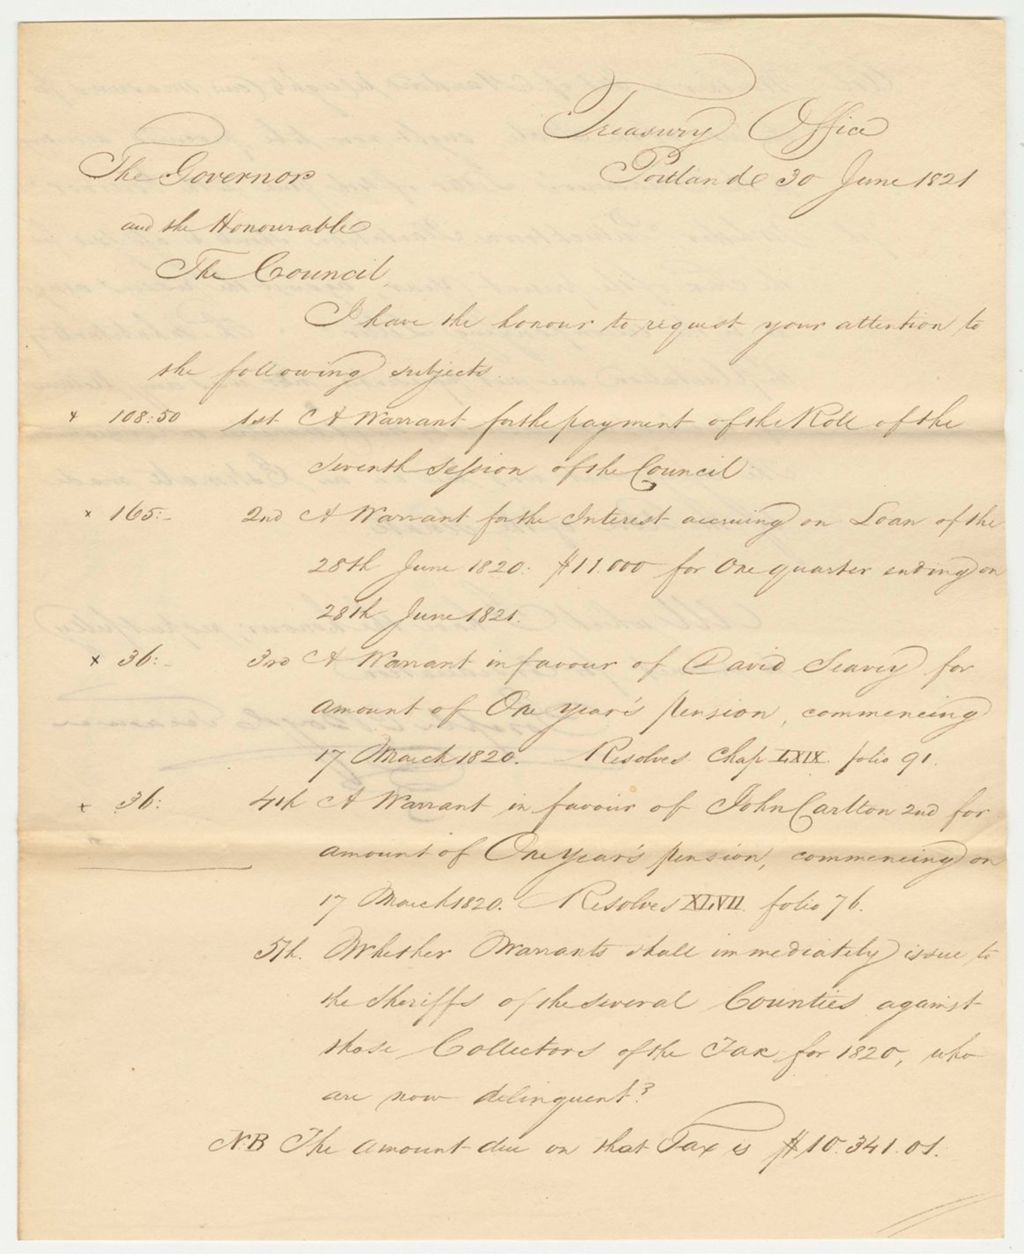 Treasury Office
Portland 30 June 1821
The Governor
and the Honourable
The Council,
I have the honour to request your attention to
the following subjects.
x 108:50 1st A Warrant for the payment of the Roll of the
Seventh Session of the Council
x 165:- 2nd A Warrant for the Interest accruing on Loan of the
28th June 1820. $11.000 for One quarter ending on
28th June 1821.
x 36:- 3rd A Warrant in favour of David Seavey for
amount of One Year's pension, commencing
17 March 1820. Resolves Chap LXIX. folio 91.
x 36: 4th A Warrant in favour of John Carlton 2nd for
amount of One Year's pension, commencing on
17 March 1820. Resolves XLVII. folio 76.
5th. Whether Warrants shall immediately issue to
the Sheriffs of the several Counties against
those Collectors of the Tax for 1820, who
are now delinquent?
NB The amount due on that Tax is $10.341.01.